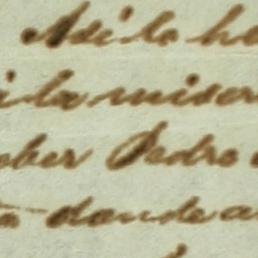 Asi lo he
i la miser
ober Pedro
donde a